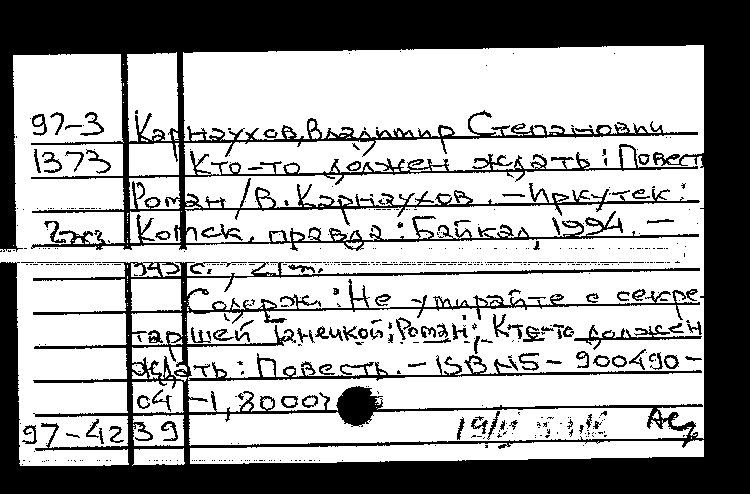 97-3 Карнаухов, Владимир Степанович
1373 Кто-то должен ждать: Повесть
Роман / В. Карнаухов. - Иркутск:
2экз Комск. правда: Байкал, 1994. -
с., 21 см.
Содерж.: Не умирайте с секре-
таршей Танечкой: Роман; Кто-то должен
ждать: Повесть. - ISBN 5-900490-
04-1, 8000э
97-4239